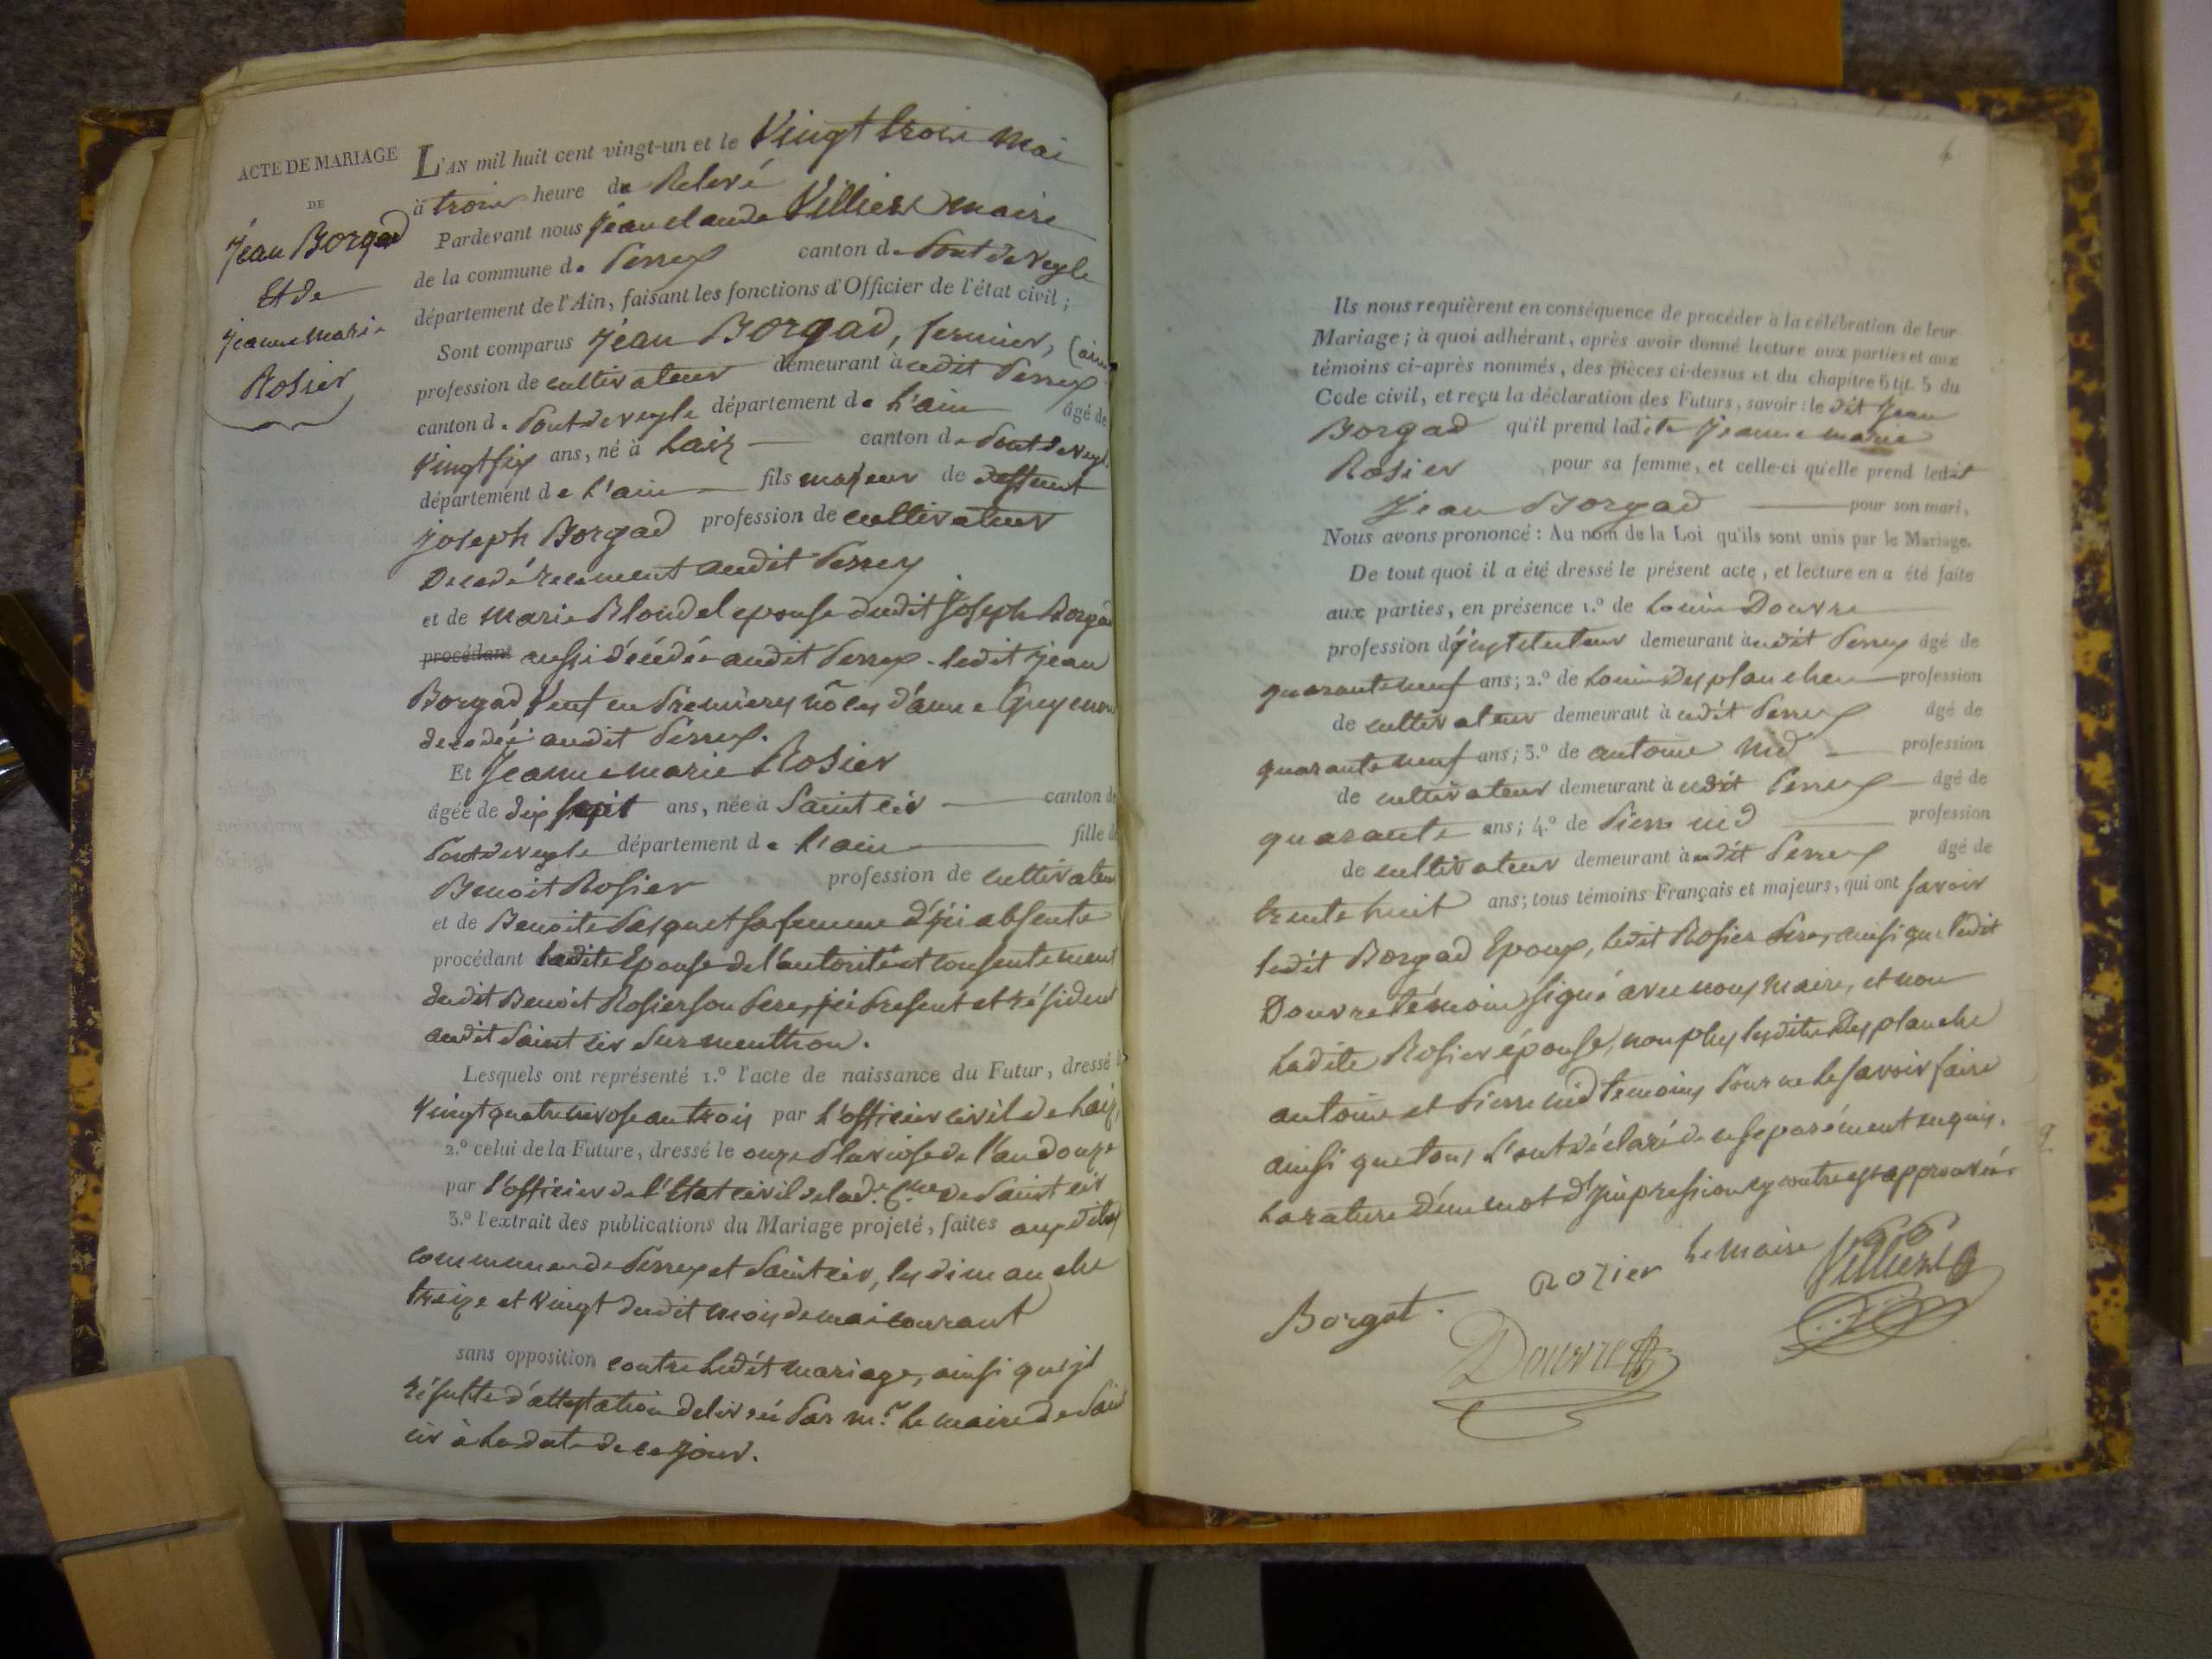 ACTE DE MARIAGE
DE
Jean Borgad
Et de
jeanne marie
Rosier
L'AN mil huit cent vingt-un et le Vingt trois mai
à trois heure de Relevé
Pardevant nous jean claude Villiers maire
de la commune de Perrex canton de Pont de Veyle
département de l'Ain, faisant les fonctions d'Officier de l'état civil ;
Sont comparus jean Borgad, fermier,
profession de cultivateur demeurant à udit Perrex
canton de Pont de veyle département de L'ain âgé de
vingt six ans, né à Laiz canton de Pont de veyle
département de L'ain fils majeur de deffunt
joseph Borgad profession de cultivateur
Decedé recement audit Perrex
et de marie Blondel epouse dudit joseph Borgad
procédant aussi décédée audit Perrex - ledit jean
Borgad Veuf en Premieres nôces d'anne Guyenon
decedée audit Perrex.
Et Jeanne marie Rosier
âgée de dix sept ans, née à Saint cir canton de
Pont de veyle département de L'ain fille de
Benoit Rosier profession de cultivateur
et de Benoite Pasquet sa femme d'ici absente
procédant Ladite Epouse de l'autorité et consentement
dudit Benoit Rosier son Pere, ici Present et résident
audit Saint cir sur menthon.
Lesquels ont représenté 1.º l'acte de naissance du Futur, dressé le
Vingt quatre nivose an trois par L'officier civil de Laiz,
2.º celui de la Future, dressé le onze Pluviose de l'an douze
par L'officier de l'Etat civil de lad.e C.ne de Saint cir
3.º l'extrait des publications du Mariage projeté, faites aux dites
communes de Perrex et Saint cir, les dimanche
treize et vingt dudit mois de mai courant
sans opposition contre Ledit mariage, ainsi qu'il
résulte d'attestation delivrée Par m.r Le maire de Saint
cir à La date de ce jour.
4
Ils nous requièrent en conséquence de procéder à la célébration de leur
Mariage ; à quoi adhérant, après avoir donné lecture aux parties et aux
témoins ci-après nommés, des pièces ci-dessus et du chapitre 6 tit. 5 du
Code civil, et reçu la déclaration des Futurs, savoir : le dit Jean
Borgad qu'il prend ladite Jeanne marie
Rosier pour sa femme, et celle-ci qu'elle prend ledit
Jean Borgad pour son mari,
Nous avons prononcé : Au nom de la Loi qu'ils sont unis par le Mariage.
De tout quoi il a été dressé le présent acte, et lecture en a été faite
aux parties, en présence 1.º de Louis Douvre
profession d'jnstituteur demeurant à udit Perrex âgé de
quarante neuf ans ; 2.º de Louis Desplanches profession
de cultivateur demeurant à udit Perrex âgé de
quarante neuf ans ; 3.º de antoine nid profession
de cultivateur demeurant à udit Perrex âgé de
quarante ans ; 4.º de Pierre nid profession
de cultivateur demeurant à udit Perrex âgé de
trente huit ans ; tous témoins Français et majeurs, qui ont savoir
ledit Borgad Epoux, ledit Rosier Pere, ainsi que ledit
Douvre témoin signé avec nous maire, et non
Ladite Rosier épouse, non plus lesdits Desplanche
antoine et Pierre nid temoins Pour ne le savoir faire
ainsi que tous L'ont déclaré de ce separément enquis.
La rature d'un mot d'jmpression cy contre est approuvée
Borgat. Rozier Le maire Villiers
Douvre